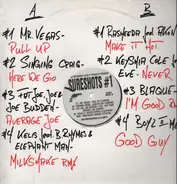 A
#1 MR. VEGAS-
PULL UP
#2 SINGING CRAIG-
HERE WE GO
#3 FAT JOE, JOE &
JOE BUDDEN
AVERAGE JOE
#4 KELIS feat. B. RHYMES &
ELEPHANT MAN-
MILKSHAKE RMX
SURESHOTS #1
B
#1 RASHEEDA feat.
MAKE IT HOT
#2 KEYSHIA COLE feat.
EVE - NEVER
#3 BLAQUE-
I'M GOOD
#4 BOYZ II
GOOD GUY